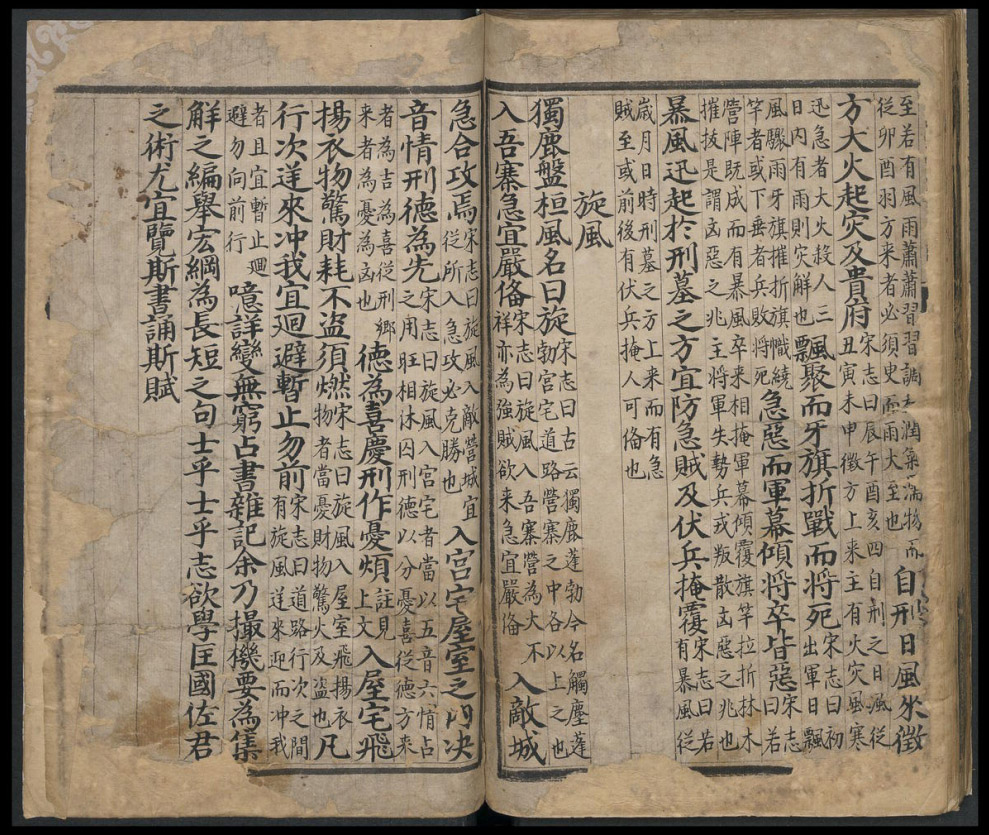 至若有風雨蕭蕭習習調潤氣濡物而
從卯酉羽方來者必須臾而雨大至也
自刑日風來徵
方大火起灾及貴府
宋志曰辰午酉亥四自刑之日風從
丑寅未申徵方上來主有火灾風寒
迅急者大火殺人三
日内有雨則灾解也
飄聚而牙旗折戰而將死
宋志曰初
出軍日飄
風驟雨牙旗摧折旗幟繞
竿者或下垂者兵敗將死
急惡而軍幕傾將卒皆惡
宋志
曰若
營陣既成而有暴風卒來相掩軍幕傾覆旗竿拉折林木
摧拔是謂凶惡之兆主將軍失勢兵或叛散凶惡之兆也
暴風迅起於刑墓之方宜防急賊及伏兵掩覆
宋志曰若
有暴風從
歲月日時刑墓之方上來而有急
賊至或前後有伏兵掩人可俻也
旋風
獨鹿盤桓風名曰旋
宋志曰古云獨鹿蓬勃今名觸塵蓬
勃宫宅道路營寨之中各以上之也
入吾寨急宜嚴俻
宋志曰旋風入吾寨營為大不
祥亦為強賊欲來急宜嚴俻
入敵城
急合攻焉
宋志曰旋風入敵營城宜
從所入急攻必克勝也
入宫宅屋室之内决
音情刑德為先
宋志曰旋風入宫宅者當以五音六情占
之用旺相休囚刑德以分憂喜從德方來
者為吉為喜從刑鄉
來者為憂為凶也
德為喜慶刑作憂煩
註見
上文
入屋宅飛
揚衣物驚財耗不盗須燃
宋志曰旋風入屋室飛揚衣
物者當憂財物驚火及盗也
凡
行次逆來冲我宜迴避暫止勿前
宋志曰道路行次之間
有旋風逆來迎而冲我
者且宜暫止廻
避勿向前行
噫詳變無窮占書雜記余乃撮機要為集
觧之編舉宏綱為長短之句士乎士乎志欲學匡國佐君
之術尤宜覽斯書誦斯賦